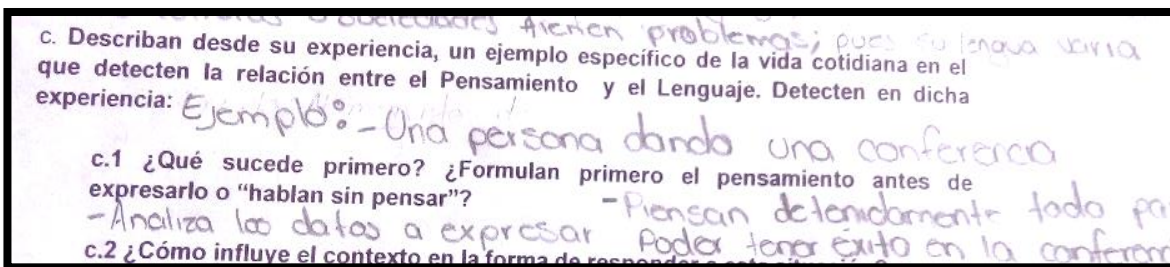 tienen problemas; pues su lengua varia
c. Describan desde su experiencia, un ejemplo específico de la vida cotidiana en el
que detecten la relación entre el Pensamiento y el Lenguaje. Detecten en dicha
experiencia: Ejemplo: - Una persona dando una conferencia
c.1 ¿Qué sucede primero? ¿Formulan primero el pensamiento antes de
expresarlo o “hablan sin pensar”?
- Piensan detenidamente todo
- Analiza los datos a expresar Poder tener éxito en la
c.2 ¿Cómo influye el contexto en la forma de responder a esta situación?